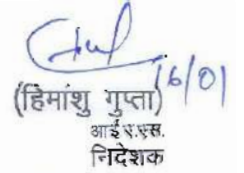 16/01
(हिमांशु गुप्ता)
आई.ए.एस.
निदेशक